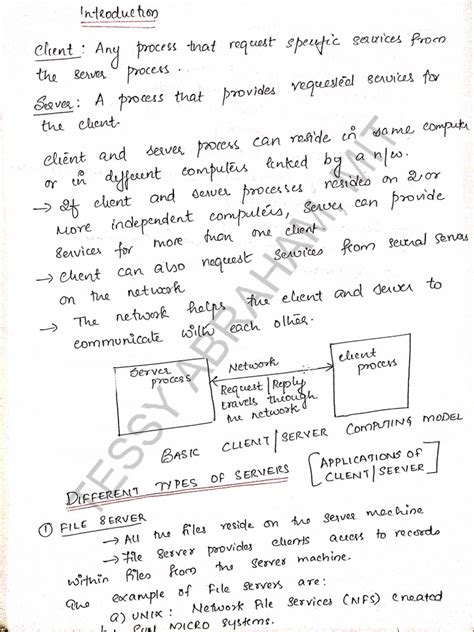 Introduction
Client : Any process that request specific services from
the server process.
Server : A process that provides requested services for
the client.
client and server process can reside in same computer
or in different computers linked by a n/w.
→ If client and server processes resides on 2 or
more independent computers, server can provide
services for more than one client
→ client can also request services from several servers
on the network
→ The network helps the client and server to
communicate with each other.
Server process
Network
Request / Reply travels through the network
client process
BASIC CLIENT/SERVER COMPUTING MODEL
DIFFERENT TYPES OF SERVERS [APPLICATIONS OF CLIENT/SERVER]
① FILE SERVER
→ All the files reside on the server machine
→ File Server provides clients access to records
within files from the server machine.
The example of File servers are:
a) UNIX : Network File Services (NFS) created
by SUN MICRO Systems.
TESSY ABRAHAM, MIT